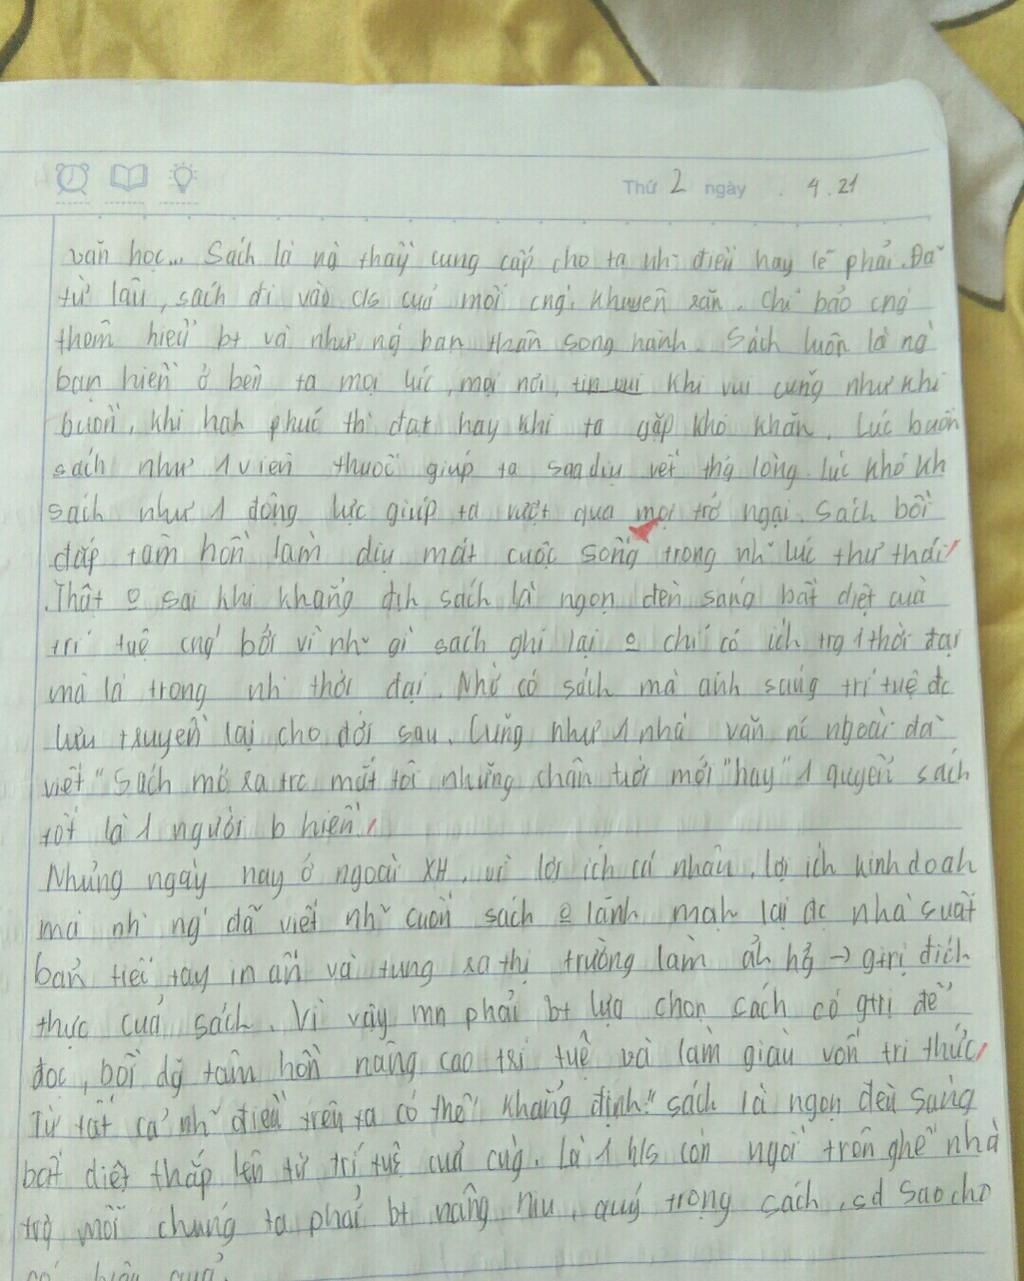 Thứ 2 ngày . 4 . 21
văn học... Sách là ng thầy cung cấp cho ta nh~ điều hay lẽ phải. Đã
từ lâu, sách đi vào c/s của mỗi cng, khuyên răn, chỉ bảo cng
thêm hiểu bt và như ng bạn thân song hành. Sách luôn là ng
bạn hiền ở bên ta mọi lúc, mọi nơi, khi vui cũng như khi
buồn, khi hah phúc thì đạt hay khi ta gặp khó khăn. Lúc buồn
sách như 1 viên thuốc giúp ta xoa dịu vết thg lòng. lúc khó kh
sách như 1 động lực giúp ta vượt qua mọi trở ngại. Sách bồi
đắp tâm hồn làm dịu mát cuộc sống trong nh~ lúc thư thái
Thật o sai khi khẳng địh sách là ngọn đèn sáng bất diệt của
trí tuệ cng bởi vì nh~ gì sách ghi lại o chỉ có ích trg 1 thời đại
mà là trong nh~ thời đại. Nhờ có sách mà ánh sáng trí tuệ đc
lưu truyền lại cho đời sau. Cũng như 1 nhà văn nc ngoài đã
viết "Sách mở ra trc mắt tôi những chân trời mới" hay "1 quyển sách
tốt là 1 người b hiền
Nhưng ngày nay ở ngoài XH, vì lợi ích cá nhân, lợi ích kinh doah
mà nh~ ng đã viết nh~ cuốn sách o lành mạh lại đc nhà suất
bản tiếp tay in ấn và tung ra thị trường làm ảh hg → gtrị đích
thực của sách. Vì vậy mn phải bt lựa chọn sách có gtrị để
đọc, bồi dg tâm hồn nâng cao trí tuệ và làm giàu vốn tri thức
Từ tất cả nh~ điều trên ta có thể khẳng định "sách là ngọn đèn sáng
bất diệt thắp lên từ trí tuệ của cng. Là 1 h/s còn ngồi trên ghế nhà
trg mỗi chúng ta phải bt nâng niu, quý trọng sách, sd sao cho
có hiệu quả.